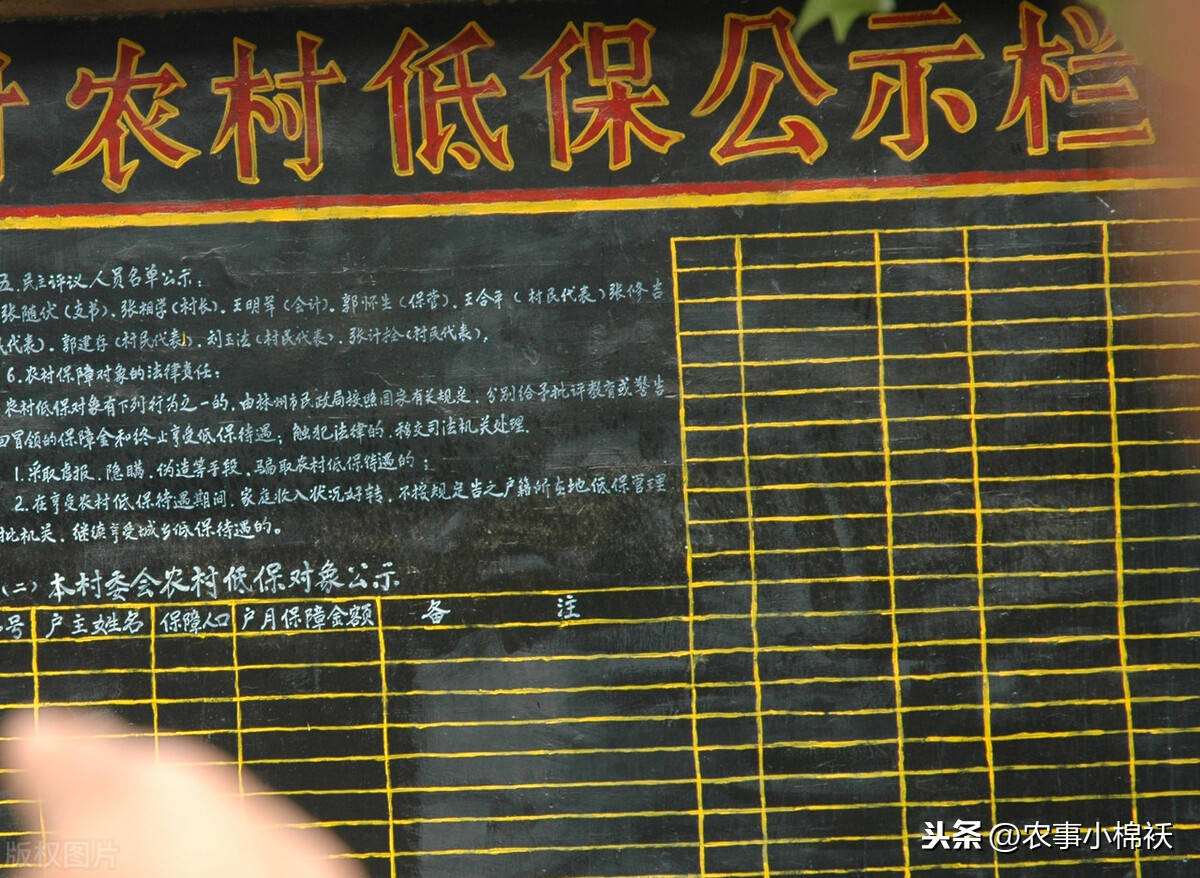 农村低保公示栏
五.民主评议人员名单公示:
张随伏(支书).张相学(村长).王明军(会计).郭怀生(保管).王合平(村民代表)张修吉
民代表).郭建存(村民代表).刘玉法(村民代表).张计拴(村民代表),
6.农村保障对象的法律责任:
农村低保对象有下列行为之一的.由林州市民政局按照国家有关规定.分别给予批评教育或警告
回冒领的保障金和终止享受低保待遇;触犯法律的.移交司法机关处理.
1.采取虚报.隐瞒.伪造等手段.骗取农村低保待遇的;
2.在享受农村低保待遇期间.家庭收入状况好转.不按规定告之户籍所在地低保管理
批机关.继续享受城乡低保待遇的。
(二)本村委会农村低保对象公示
号 户主姓名 保障人口 户月保障金额 备 注
头条 @农事小棉袄
版权图片